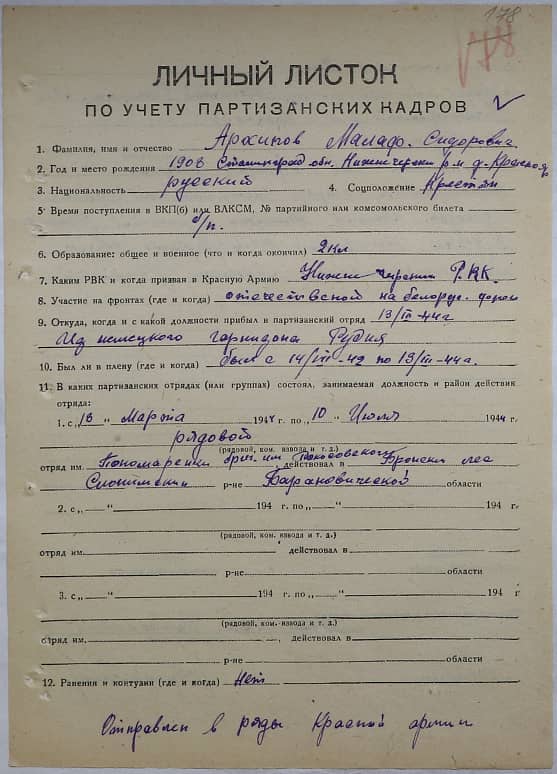 178
178
ЛИЧНЫЙ ЛИСТОК
ПО УЧЕТУ ПАРТИЗАНСКИХ КАДРОВ
1. Фамилия, имя и отчество Архипов Малаф. Сидорович
2. Год и место рождения 1908 Сталинград обл. Нижнечерский р-н д.
3. Национальность русский 4. Соцположение Крестьян
5. Время поступления в ВКП(б) или ВЛКСМ, № партийного или комсомольского билета
б/п.
6. Образование: общее и военное (что и когда окончил) 2кл
7. Каким РВК и когда призван в Красную Армию Нижне Чирским Р.В.К.
8. Участие на фронтах (где и когда) отечественой на белорус.
9. Откуда, когда и с какой должности прибыл в партизанский отряд 13/III-44г
Из немецкого гарнизона Рудня
10. Был ли в плену (где и когда) был с 14/VII-42 по 13/III-44г.
11. В каких партизанских отрядах (или группах) состоял, занимаемая должность и район действия
отряда:
1. с „13 " Марта 1944 г. по „10 " Июля 1944 г.
рядовой
(рядовой, ком. взвода и т. д.)
отряд им. Пономаренки бриг. им Рокосовского действовал в лес
Слонимский р-не Барановической области
2. с „ " 194 г. по „ " 194 г.
(рядовой, ком. взвода и т. д.)
отряд им. действовал в
р-не области
3. с „ " 194 г. по „ " 194 г
(рядовой, ком. взвода и т. д.)
отряд им. действовал в
р-не области
12. Ранения и контузии (где и когда) Нет
Отправлен в ряды Красной армии